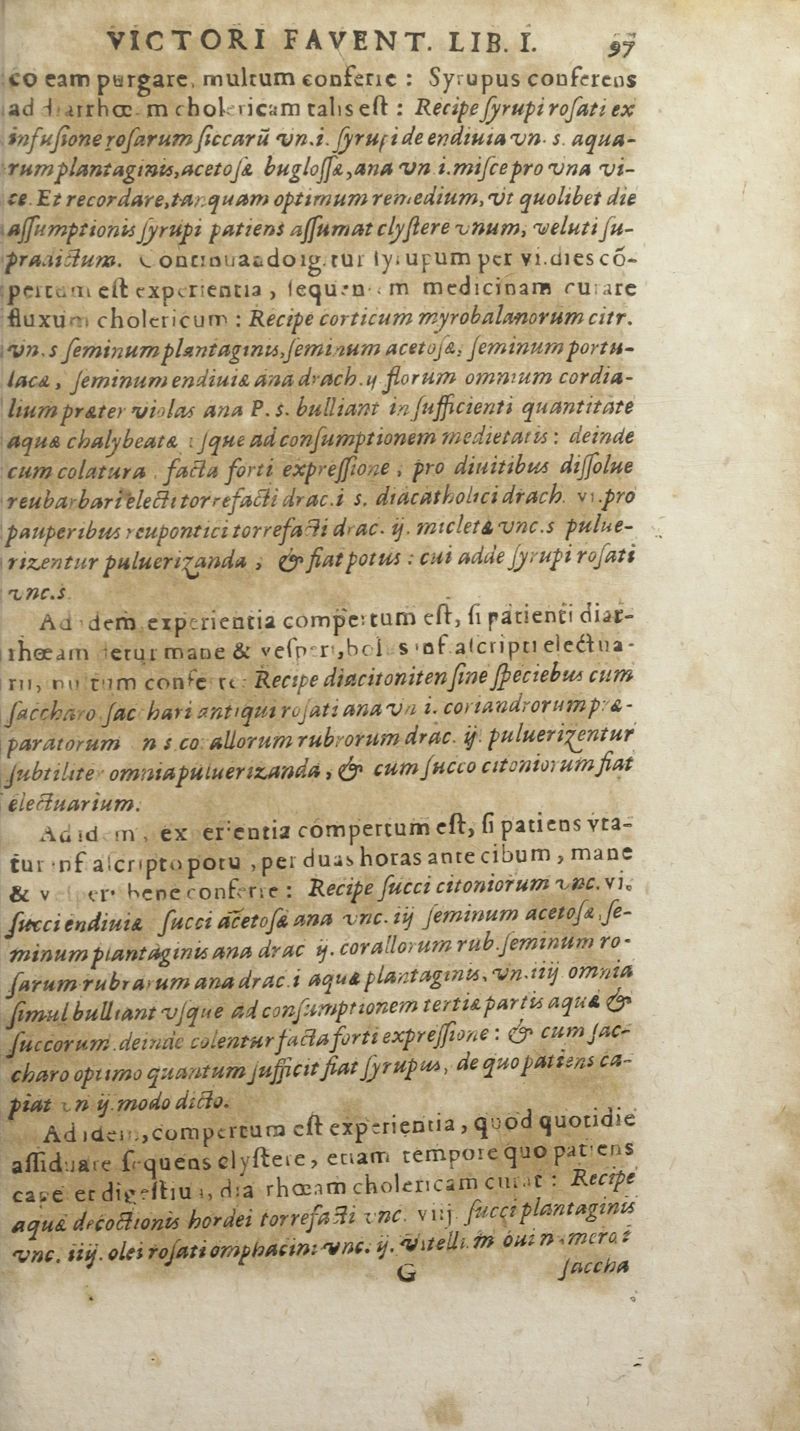 VICTORI FAVENT. LIB. I. 97
co eam purgare, multum conferte : Syrupus conferens
ad diarrhœam cholericam talis eſt : Recipe ſyrupi roſati ex
infuſione roſarum ſiccarū vn.i. ſyrupi de endiuia vn. s. aqua-
rum plantaginis, acetoſæ bugloſſæ, ana vn i. miſce pro vna vi-
ce. Et recordare, tanquam optimum remedium, vt quolibet die
aſſumptionis ſyrupi patiens aſſumat clyſtere vnum, veluti ſu-
pradictum. ſyrupum per vi.dies cō-
pertum eſt experientia, ſequentem medicinam curare
fluxum cholericum : Recipe corticum myrobalanorum citr.
vn. s ſeminum plantaginis, ſeminum acetoſæ, ſeminum portu-
lacæ, ſeminum endiuiæ ana drach. ij florum omnium cordia-
lium præter violas ana P. s. bulliant in ſufficienti quantitate
aquæ chalybeatæ vſque ad conſumptionem medietatis : deinde
cum colatura facta forti expreſſione, pro diuitibus diſſolue
reubarbari electi torrefacti drac.i s. diacatholici drach. vi.pro
pauperibus reupontici torrefacti drac. ij. micletæ vnc.s pulue-
rizentur puluerizanda, & fiat potus : cui adde ſyrupi roſati
vnc.s
Ad idem experientia compertum eſt, ſi patienti diar-
rhœam detur mane & veſperi, infraſcripti electua-
rii, multum conferre : Recipe diacitoniten ſine ſpeciebus cum
ſaccharo ſacchari antiqui roſati ana vn i. coriandrorum præ-
paratorum vn s corallorum rubrorum drac. ij. puluerizentur
ſubtiliter omnia puluerizanda, & cum ſucco citoniorum fiat
electuarium.
Ad idem, experientia compertum eſt, ſi patiens vta-
tur infraſcripto potu, per duas horas ante cibum, mane
& bene conferte : Recipe ſucci citoniorum vnc. vi.
ſucci endiuiæ ſucci acetoſæ ana vnc. iij ſeminum acetoſæ, ſe-
minum plantaginis ana drac ij. corallorum rub. ſeminum ro-
ſarum rubrarum ana drac.i aquæ plantaginis, vn.iiij omnia
ſimul bulliant vſque ad conſumptionem tertiæ partis aquæ &
ſuccorum. deinde colentur facta forti expreſſione : & cum ſac-
charo optimo quantum ſufficit fiat ſyrupus, de quo patiens ca-
piat vn ij. modo dicto.
Ad idem, compertum eſt experientia, quod quotidie
aſſiduare ſequens clyſtere, etiam tempore quo patiens
cholericam curat : Recipe
aquæ decoctionis hordei torrefacti vnc. viij ſucci plantaginis
vnc. iiij. olei roſati omphacini vnc. ij. numero i
G ſaccha